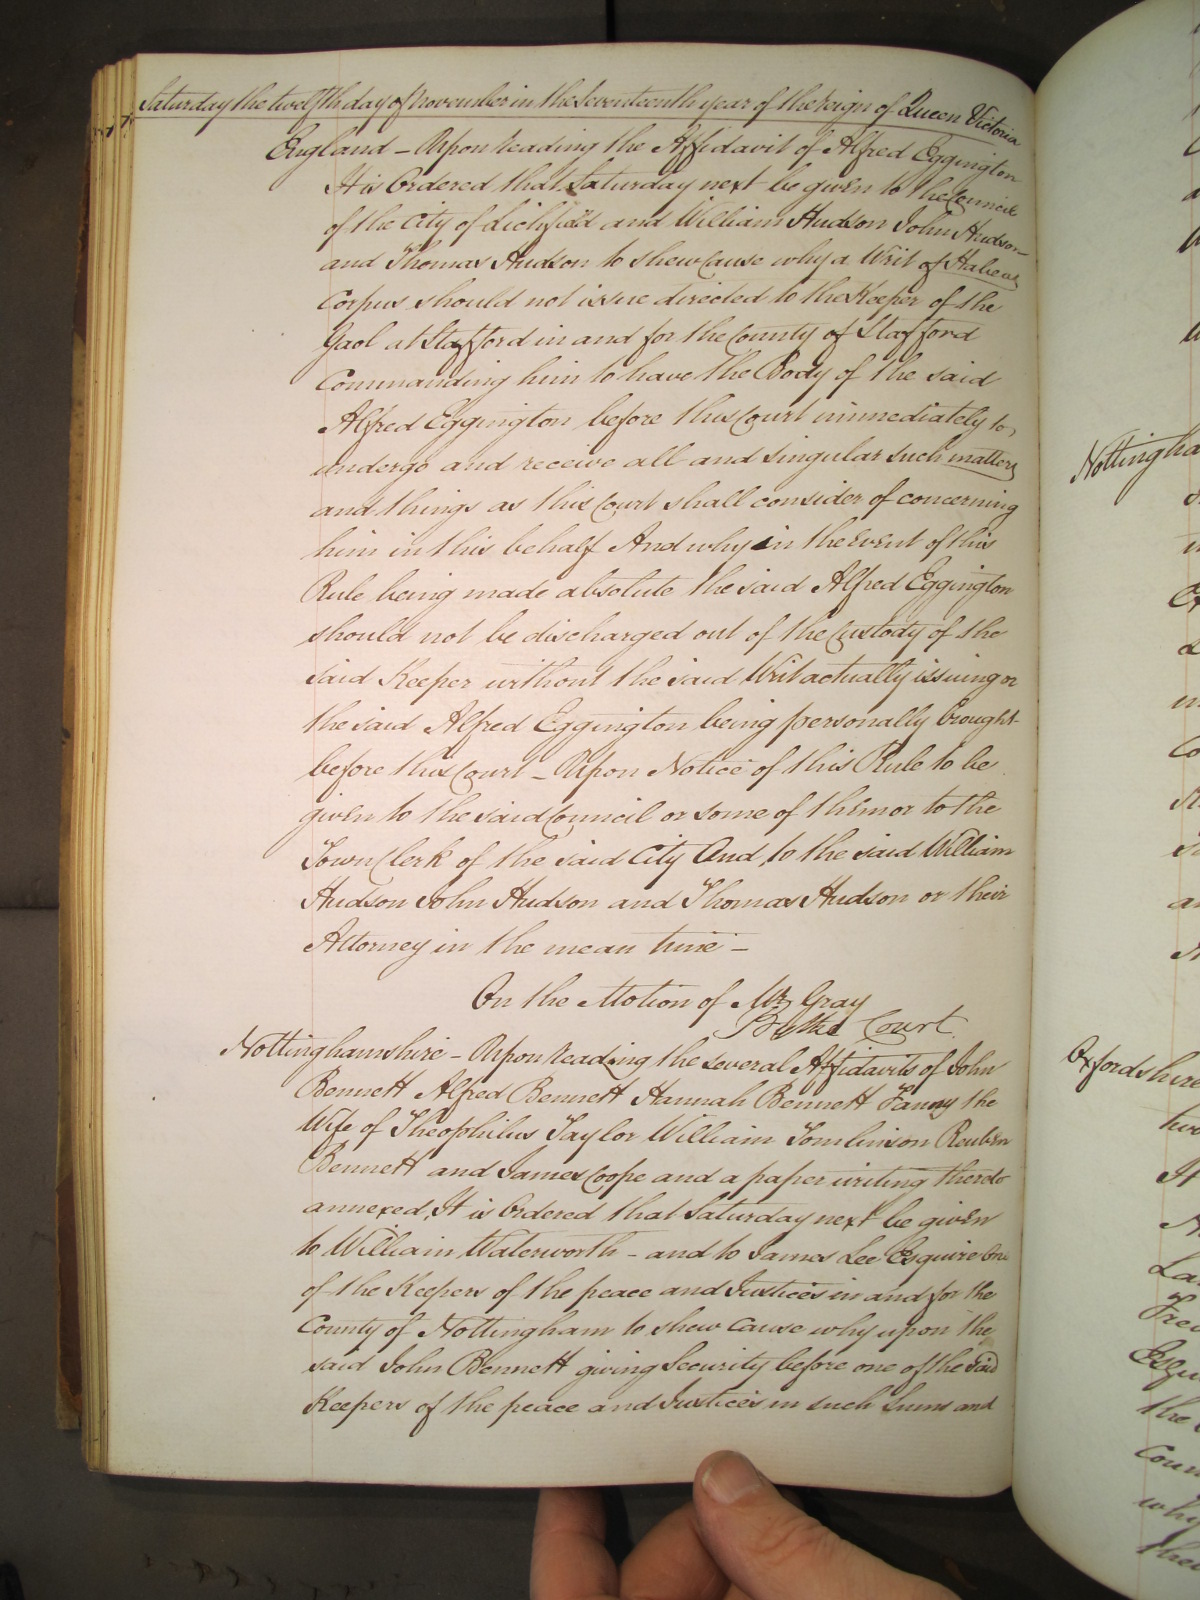 Saturday the twelfth day of November in the Seventeenth year of the Reign of Queen Victoria
England – Upon reading the Affidavit of Alfred Eggington
It is Ordered that Saturday next be given to the Council
of the City of Lichfield and William Hudson John Hudson
and Thomas Hudson to shew Cause why a Writ of Habeas
Corpus should not issue directed to the Keeper of the
Gaol at Stafford in and for the County of Stafford
Commanding him to have the Body of the said
Alfred Eggington before this Court immediately to
undergo and receive all and singular such matters
and things as this Court shall consider of concerning
him in this behalf And why in the Event of this
Rule being made absolute the said Alfred Eggington
should not be discharged out of the Custody of the
said Keeper without the said Writ actually issuing or
the said Alfred Eggington being personally brought
before this Court – Upon Notice of this Rule to be
given to the said Council or some of them or to the
Town Clerk of the said City And to the said William
Hudson John Hudson and Thomas Hudson or their
Attorney in the mean time –
On the Motion of Mr Gray
By the Court
Nottinghamshire – Upon reading the several Affidavits of John
Bennett Alfred Bennett Hannah Bennett Fanny the
Wife of Theophilus Taylor William Tomlinson Reuben
Bennett and James Coope and a paper writing thereto
annexed, It is Ordered that Saturday next be given
to William Waterworth – and to James Lee Esquire One
of the Keepers of the peace and Justices in and for the
County of Nottingham to shew Cause why upon the
said John Bennett giving Security before one of the said
Keepers of the peace and Justices in such Sums and
Nottingha
Oxfordshire
It
La
Esqu
the
Coun
why